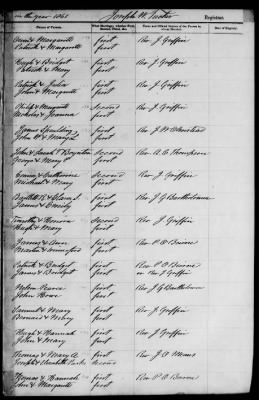 in the year 1861 Joseph W. Tucker Registrar.
Names of Parents. What Marriage, whether First, Second, Third, &c. Name and Official Station of the Person by whom Married. Date of Registry.
& Margaret first Rev J. Griffin
Patrick & Margarette first
Hugh & Bridget first Rev J. Griffin
Patrick & Mary first
Patrick & Julia first Rev J. Griffin
John & Margarette first
Philip & Margarette second Rev J. Griffin
Nicholas & Joanna first
Spaulding first Rev J. W. Olmstead
John & first
John & Sarah P. Boynton second Rev A. C. Thompson
George & Mary first
& Catharine second Rev J. Griffin
Michael & Mary first
& first Rev J G Bartholomew
James & Emily first
Timothy & Honora second Rev J. Griffin
Hugh & Mary first
James & Ann first Rev P O Beirne
Martin & Winnifred first
Patrick & Bridget first Rev P O Beirne
James & Bridget first or Rev J Griffin
Nelson Pearce first Rev J G Bartholomew
John first
Samuel & Mary first Rev J. Griffin
& Mary first
Hugh & Hannah first Rev J. Griffin
John & Mary first
Thomas & Mary A. first Rev J O Means
Joseph & Elizabeth Parks second
Thomas & Hannah first Rev P O Beirne
John & Margarette first